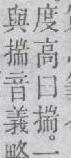 度高曰揣一
與揣音義略